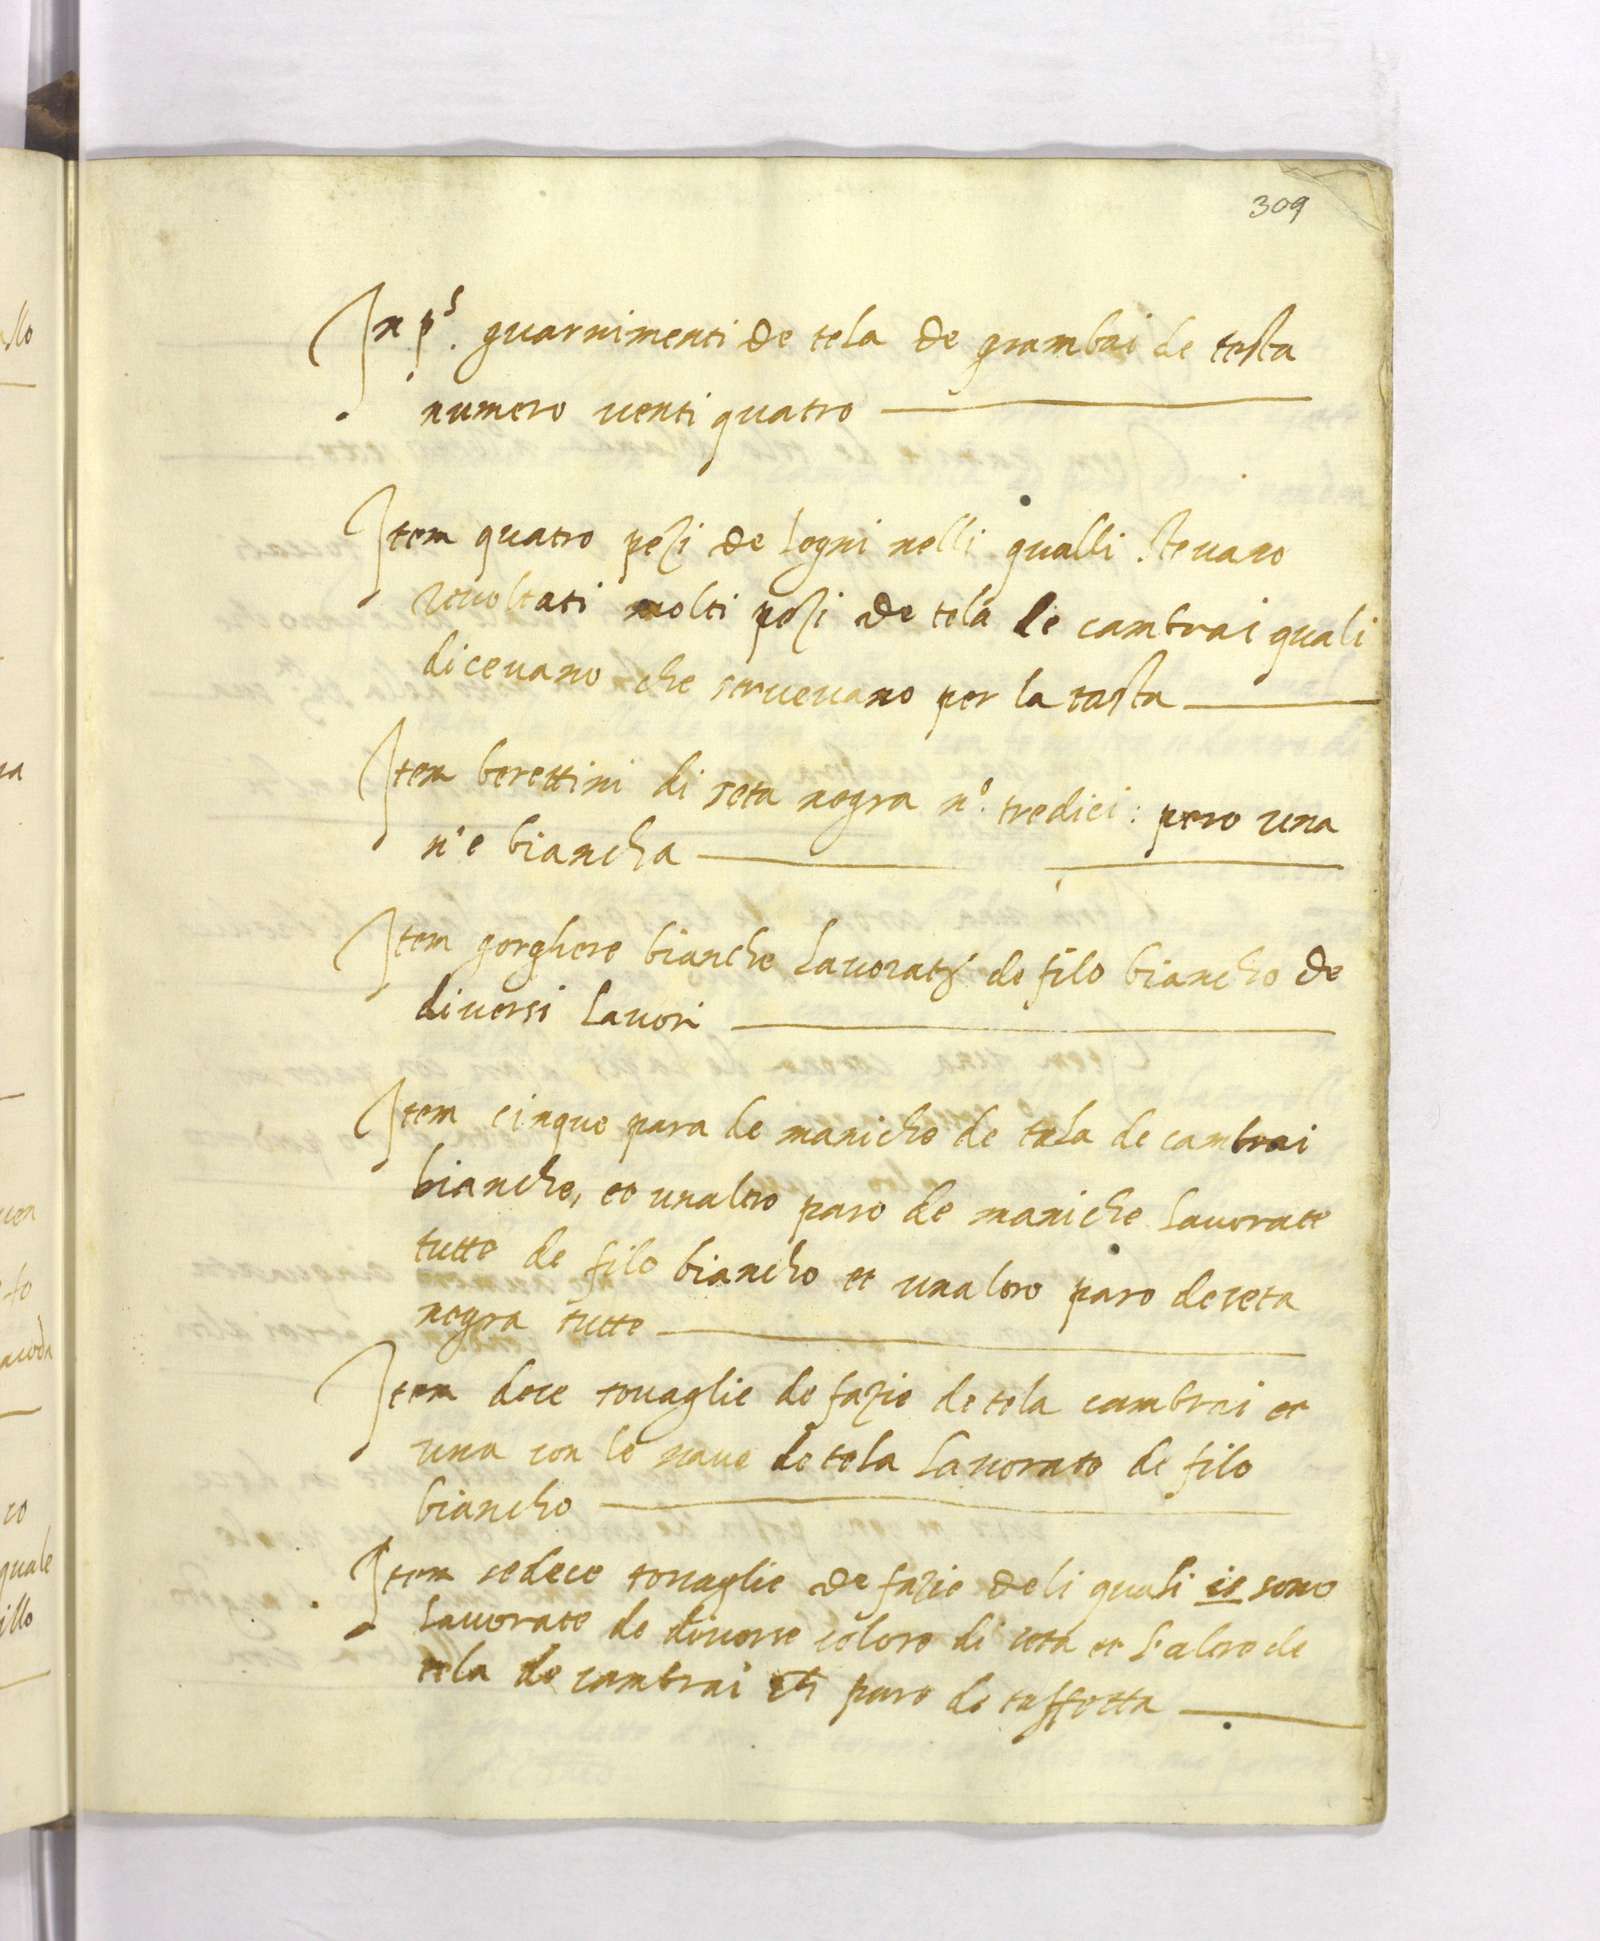 309
In p.s guarnimenti de tela de grambai de testa
numero venti quatro
Item quatro pezi de legni nelli qualli stevano
revoltati molti pezi de tela de cambrai quali
dicevano che servevano per la testa
Item berettini di seta negra n.o tredici: pero una
n'e biancha
Item gorghere bianche lavorate de filo biancho de
diversi lavori
Item cinque para de maniche de tela de cambrai
bianche, et unaltro paro de maniche lavorate
tutte de filo biancho et unaltro paro de seta
negra tutte
Item doce tovaglie de fazie de tela cambrai et
una con le nave de tela lavorate de filo
biancho
Item sedece tovaglie de fazie deli quali is sono
lavorate de diverse colore di seta et l'altre de
tela de cambrai paro de taffetta